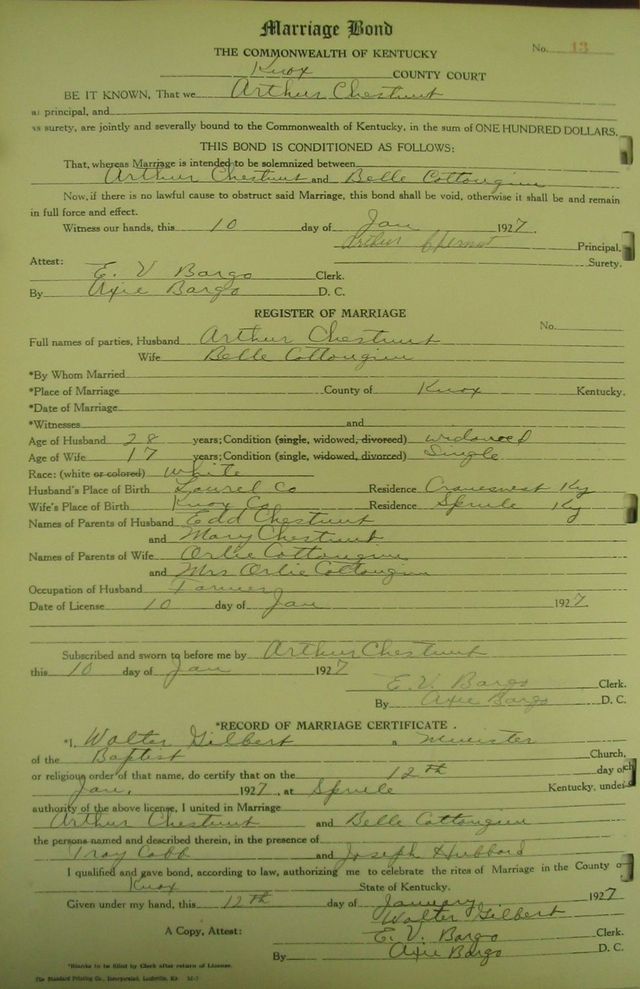 Marriage Bond
THE COMMONWEALTH OF KENTUCKY
No. 13
Knox COUNTY COURT
BE IT KNOWN, That we Arthur Chestnut
as principal, and
as surety, are jointly and severally bound to the Commonwealth of Kentucky, in the sum of ONE HUNDRED DOLLARS.
THIS BOND IS CONDITIONED AS FOLLOWS:
That, whereas Marriage is intended to be solemnized between
Arthur Chestnut and Belle Cottongim
Now, if there is no lawful cause to obstruct said Marriage, this bond shall be void, otherwise it shall be and remain
in full force and effect.
Witness our hands, this 10 day of Jan 1927.
Arthur Principal.
Surety.
Attest:
E. V Bargo Clerk.
By Axie Bargo D. C.
REGISTER OF MARRIAGE
No.
Full names of parties, Husband Arthur Chestnut
Wife Belle Cottongim
*By Whom Married
*Place of Marriage County of Knox Kentucky.
*Date of Marriage
*Witnesses and
Age of Husband 28 years; Condition (single, widowed, divorced) widowed
Age of Wife 17 years; Condition (single, widowed, divorced) Single
Race: (white or colored) white
Husband's Place of Birth Laurel Co Residence Cranesnest Ky
Wife's Place of Birth Knox Co Residence Sprule Ky
Names of Parents of Husband Edd Chestnut
and Mary Chestnut
Names of Parents of Wife Orlie Cottongim
and Mrs Orlie Cottongim
Occupation of Husband Farmer
Date of License 10 day of Jan 1927
Subscribed and sworn to before me by Arthur Chestnut
this 10 day of Jan 1927
E. V. Bargo Clerk.
By Axie Bargo D. C.
*RECORD OF MARRIAGE CERTIFICATE.
*I, Walter Gilbert a Minister
of the Baptist Church,
or religious order of that name, do certify that on the 12th day of
Jan. 1927, at Sprule Kentucky, under
authority of the above license, I united in Marriage
Arthur Chestnut and Belle Cottongim
the persons named and described therein, in the presence of
Troy Cobb and Joseph Hubbard
I qualified and gave bond, according to law, authorizing me to celebrate the rites of Marriage in the County o
Knox State of Kentucky.
Given under my hand, this 12th day of January 1927
Walter Gilbert
A Copy, Attest: E. V. Bargo Clerk.
By Axie Bargo D. C.
*Blanks to be filled by Clerk after return of License.
The Standard Printing Co., Incorporated, Louisville, Ky.